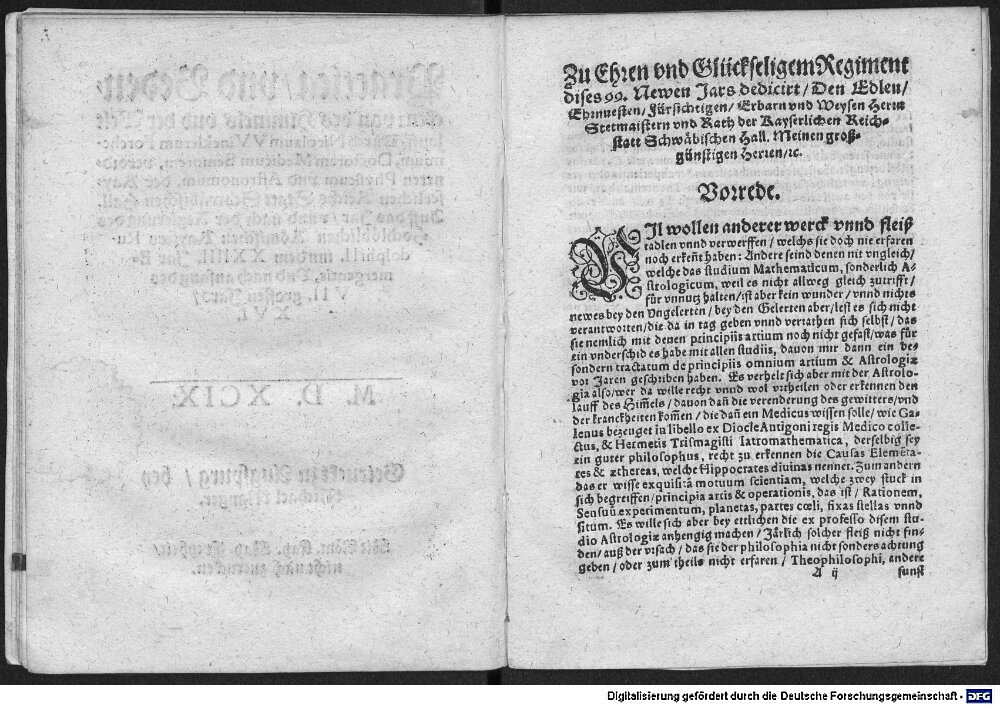 Zu Ehren vnd Glückseligem Regiment
dises 99. Newen Jars dedicirt / Den Edlen /
Ehrnuesten / Fürsichtigen / Erbarn vnd Weysen Herrn
Stetmaistern vnd Rath der Kayserlichen Reich-
statt Schwäbischen Hall. Meinen groß-
günstigen Herren / ꝛc.
Vorrede.
VIl wollen anderer werck vnnd fleiß
tadlen vnnd verwerffen / welchs sie doch nie erfaren
noch erkeñt haben: Andere seind denen nit vngleich /
welche das studium Mathematicum, sonderlich A-
strologicum, weil es nicht allweg gleich zutrifft /
für vnnutz halten / ist aber kein wunder / vnnd nichts
newes bey den Vngelerten / bey den Gelerten aber / lest es sich nicht
verantworten / die da in tag geben vnnd verrathen sich selbst / das
sie nemlich mit denen principiis artium noch nicht gefast / was für
ein vnderschid es habe mit allen studiis, dauon mir dann ein be-
sondern tractatum de principiis omnium artium & Astrologiæ
vor Jaren geschriben haben. Es verhelt sich aber mit der Astrolo-
gia also / wer da wille recht vnnd wol vrtheilen oder erkennen den
lauff des Him̃els / dauon dañ die verenderung des gewitters / vnd
der kranckheiten kom̃en / die dañ ein Medicus wissen solle / wie Ga-
lenus bezeuget in libello ex Diocle Antigoni regis Medico colle-
ctus, & Hermetis Trismagisti Iatromathematica, derselbig sey
ein guter philosophus, recht zu erkennen die Causas Elemēta-
res & æthereas, welche Hippocrates diuinas nennet. Zum andern
das er wisse exquisitā motuum scientiam, welche zwey stuck in
sich begreiffen / principia artis & operationis, das ist / Rationem,
Sensuū experimentum, planetas, partes cœli, fixas stellas vnnd
situm. Es wille sich aber bey ettlichen die ex professo disem stu-
dio Astrologiæ anhengig machen / Järlich solcher fleiß nicht fin-
den / auß der vrsach / das sie der philosophia nicht sonders achtung
geben / oder zum theils nicht erfaren / Theophilosophi, andere
A ij sunst
Digitalisierung gefördert durch die Deutsche Forschungsgemeinschaft - DFG